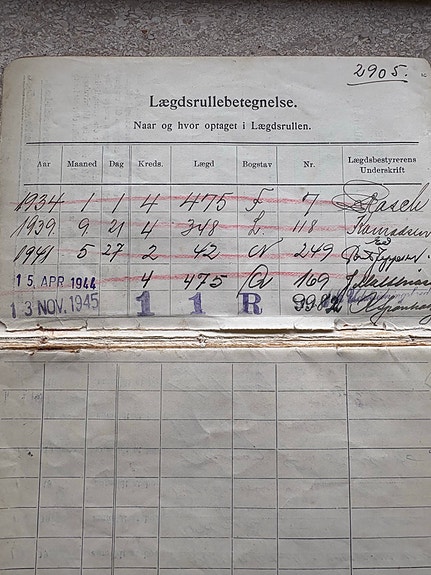 2905.
Lægdsrullebetegnelse.
Naar og hvor optaget i Lægdsrullen.
Aar Maaned Dag Kreds. Lægd Bogstav Nr. Lægdsbestyrerens Underskrift
1934 1 1 4 475 F 7 Rasch
1939 9 21 4 348 L 118
1941 5 27 2 42 N 249
15. APR 1944 4 475 169
13 NOV. 1945 1 1 R